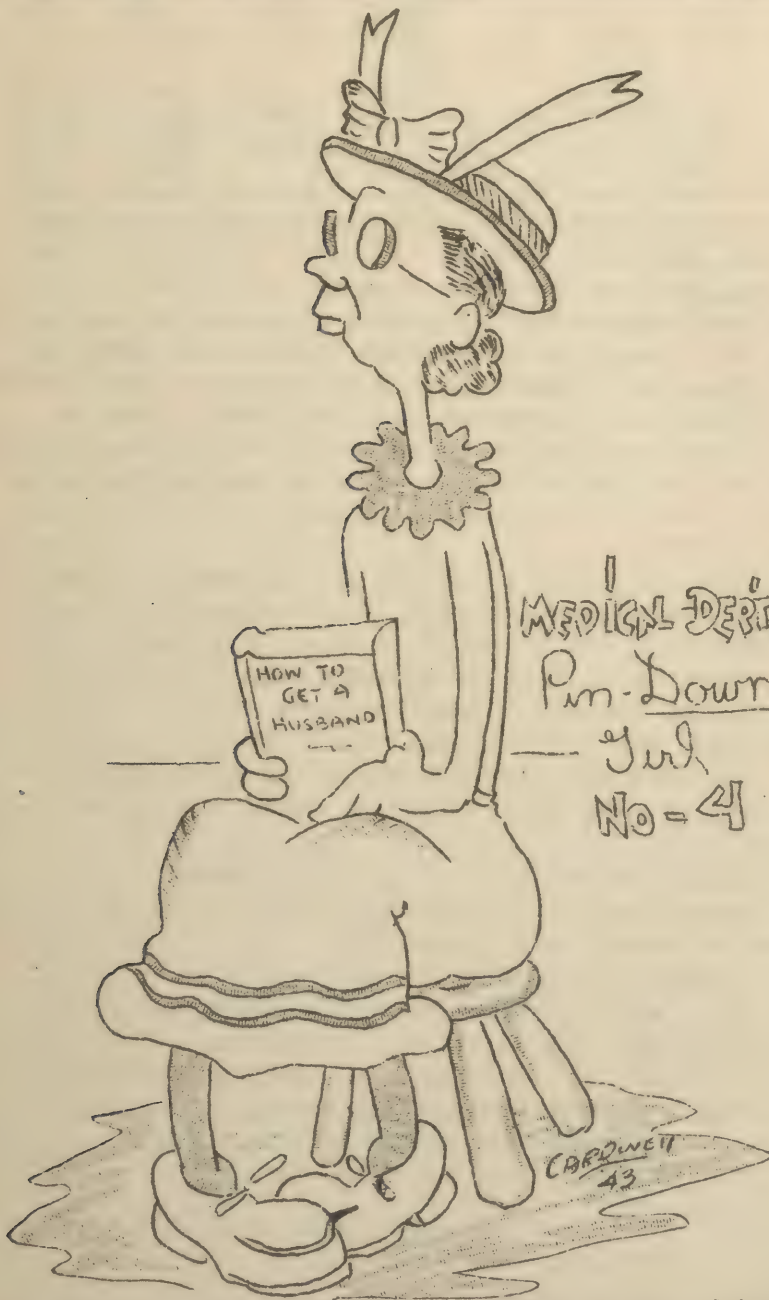 HOW TO
GET A
HUSBAND
MEDICAL DEP'T
Pin-Down
Girl
No-4
43